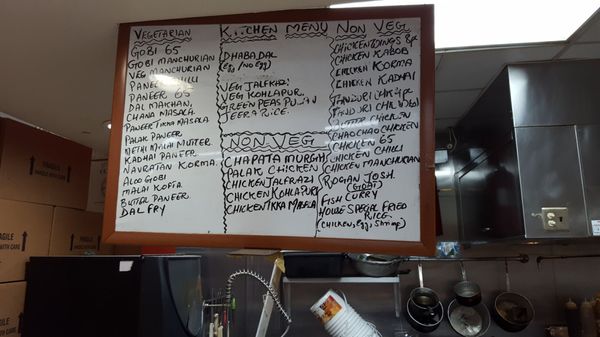 VEGETARIAN
GOBI 65
GOBI MANCHURIAN
VEG MANCHURIAN
PANEER CHILLI
PANEER 65
DAL MAKHAN,
CHANA MASALA
PANEER TIKKA MASALA
PALAK PANEER
METHI MALAI MUTTER
KADHAI PANEER
NAVRATAN KORMA
ALOO GOBI
MALAI KOFTA
BUTTER PANEER
DAL FRY
KITCHEN MENU
DHABA DAL
(Egg/NO Egg)
VEG JALFRAZI
VEG KOHLAPUR
GREEN PEAS PULAV
JEERA RICE.
NON VEG
CHAPATA MURGH
PALAK CHICKEN
CHICKEN JALFRAZI
CHICKEN KOHLAPURY
CHICKEN TIKKA MASALA
NON VEG
CHICKEN WINGS
CHICKEN KABOB
CHICKEN KORMA
CHICKEN KADHAI
TANDURI
TANDURI CHICKEN
BUTTER CHICKEN
CHAO CHAO CHICKEN
CHICKEN 65
CHICKEN CHILLI
CHICKEN MANCHURIAN
ROGAN JOSH
(GOAT)
FISH CURRY
HOUSE SPECIAL FRIED
RICE
(CHICKEN, Egg, Shrimp)
FRAGILE
WITH CARE